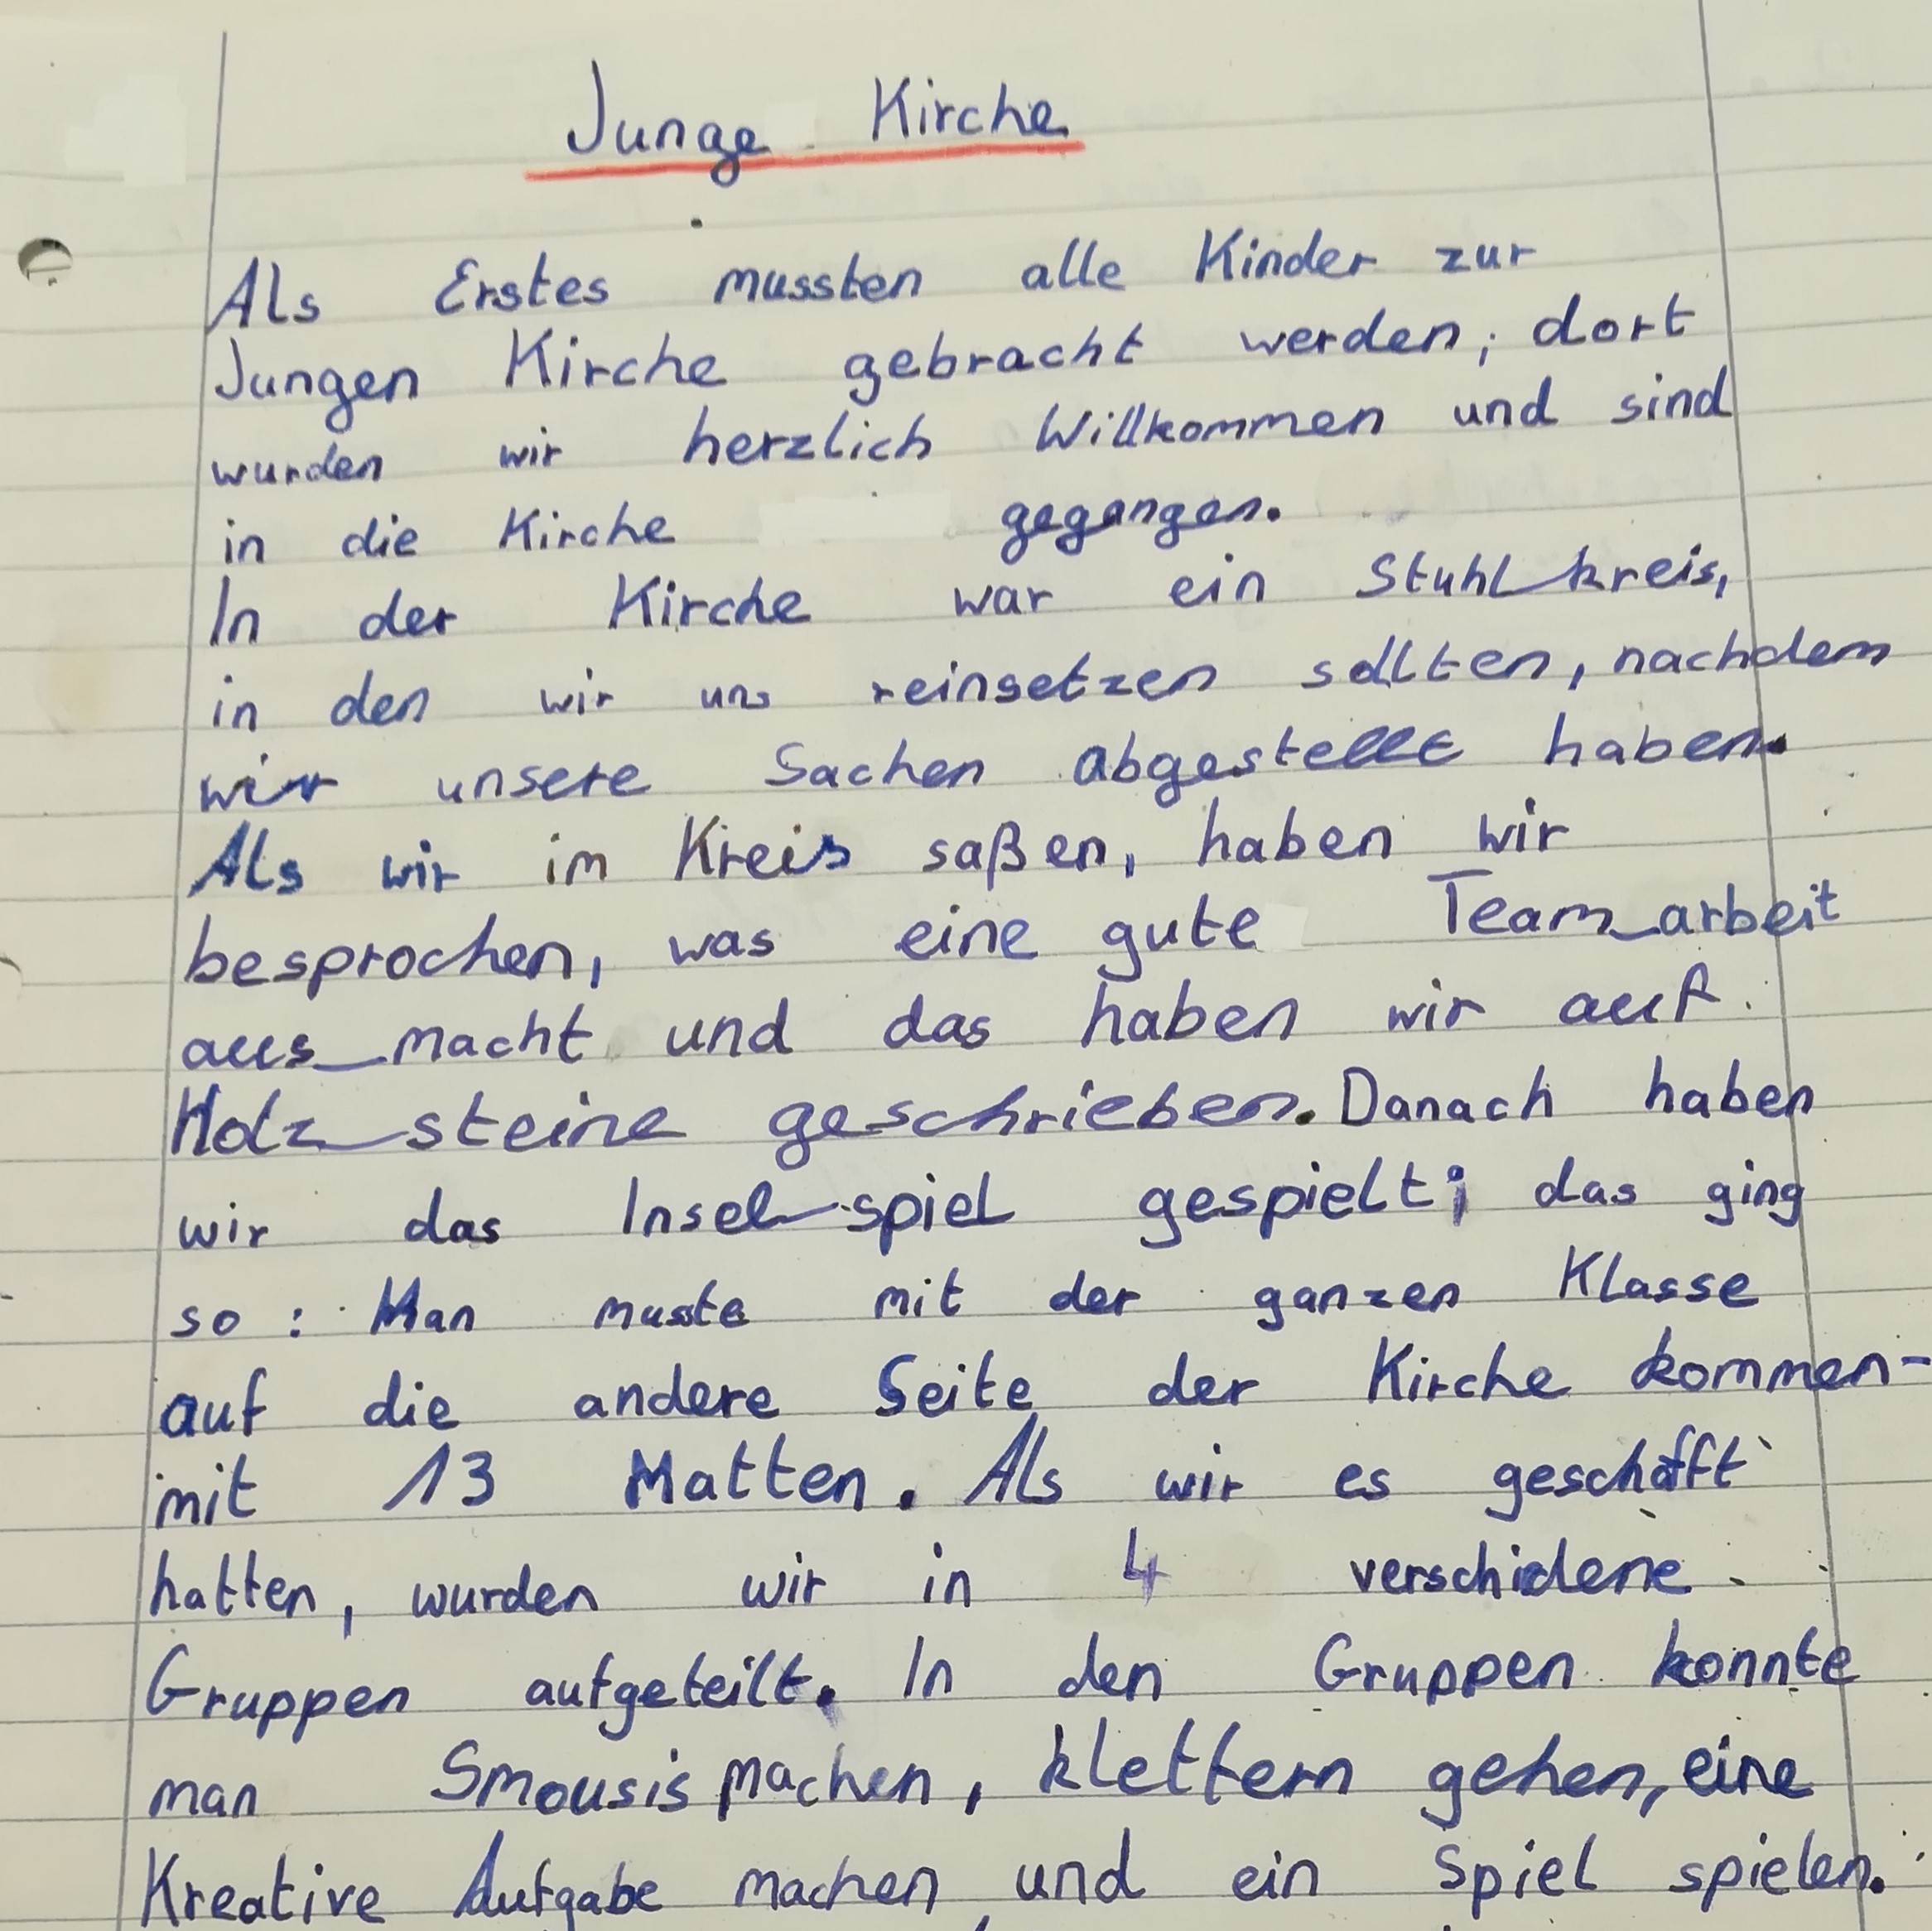 Junge Kirche
Als Erstes mussten alle Kinder zur
Jungen Kirche gebracht werden; dort
wurden wir herzlich Willkommen und sind
in die Kirche gegangen.
In der Kirche war ein Stuhlkreis,
in den wir uns reinsetzen sollten, nachdem
wir unsere Sachen abgestellt haben.
Als wir im Kreis saßen, haben wir
besprochen, was eine gute Teamarbeit
ausmacht und das haben wir auf
Holzsteine geschrieben. Danach haben
wir das Inselspiel gespielt; das ging
so: Man musste mit der ganzen Klasse
auf die andere Seite der Kirche kommen-
mit 13 Matten. Als wir es geschafft
hatten, wurden wir in 4 verschidene
Gruppen aufgeteilt. In den Gruppen konnte
man Smousis machen, klettern gehen, eine
Kreative Aufgabe machen und ein Spiel spielen.